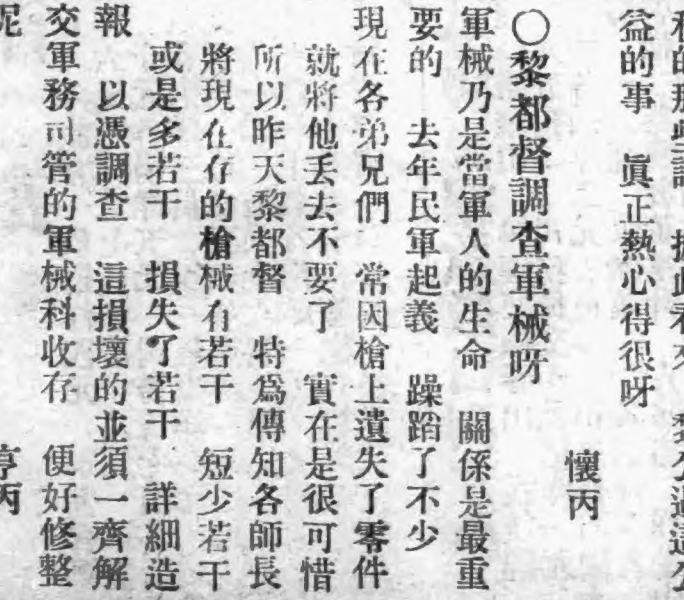 益的事　眞正熱心得很呀
懷丙
○黎都督調查軍械呀
軍械乃是當軍人的生命　關係是最重
要的　去年民軍起義　躁蹈了不少
現在各弟兄們　常因槍上遺失了零件
就將他丟去不要了　實在是很可惜
所以昨天黎都督　特爲傳知各師長
將現在存的槍械有若干　短少若干
或是多若干　損失了若干　詳細造
報　以憑調查　這損壞的並須一齊解
交軍務司管的軍械科收存　便好修整
呢　亨丙